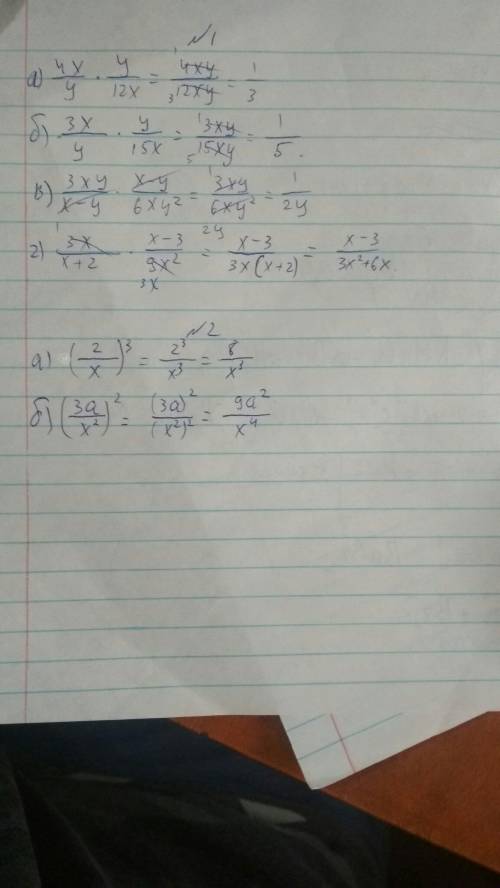 №1
а) 4x/y · y/12x = 4xy/12xy = 1/3
б) 3x/y · y/15x = 3xy/15xy = 1/5.
в) 3xy/x-y · x-y/6xy² = 3xy/6xy² = 1/2y
г) 3x/x+2 · x-3/9x² = x-3/3x(x+2) = x-3/3x²+6x.
№2
а) (2/x)³ = 2³/x³ = 8/x³
б) (3a/x²)² = (3a)²/(x²)² = 9a²/x⁴